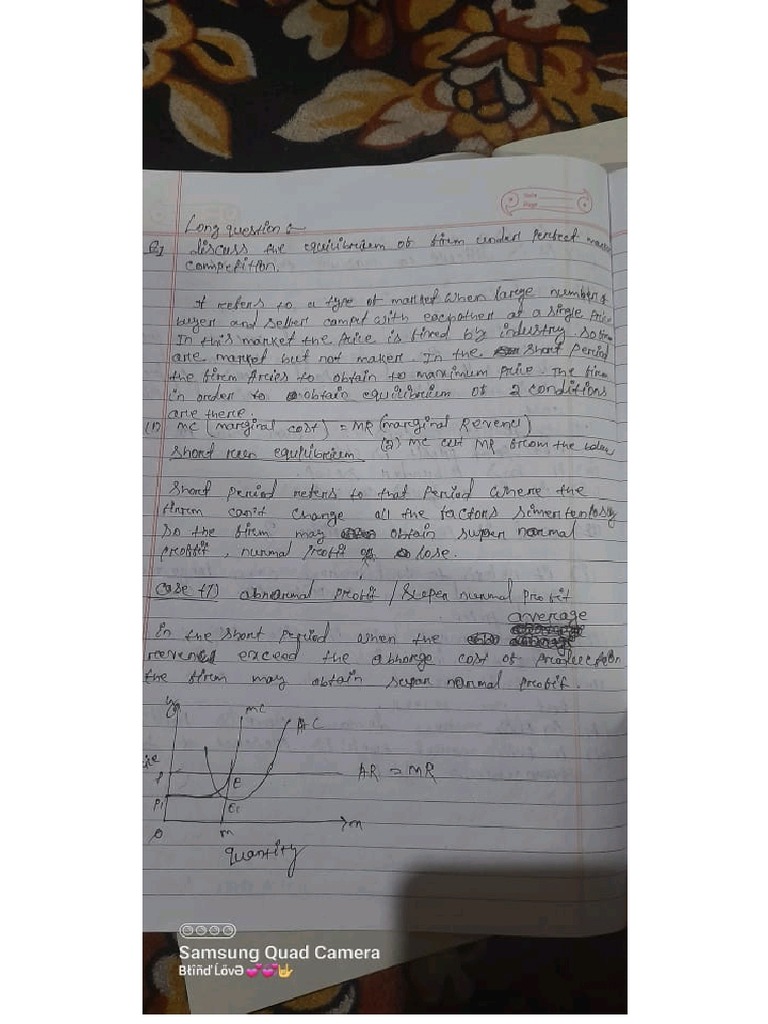 Long question :-
Q1 Discuss the equilibrium of firem under perfect
competition.
It refers to a type of market when large number of
buyer and seller compet with eacpother at a single price
In this market the price is fixed by industry. so
are market but not maker. In the short period
the firem to obtain to maximum price. The
in order to obtain equilibrium of 2 conditions
are there.
(1) MC (marginal cost) = MR (marginal Revenu)
Short reen equilibrium (2) MC cut MR from the below
Short period refers to that period where the
firem can't change all the factors simentenlosy
so the firem may obtain super normal
profit, nurmal profit or lose.
Case (1) abnormal profit / Super nurmal profit
average
in the short period when the
revenue exceed the abhorge cost of production
the firem may obtain super normal profit.
Y
MC
AC
P
E
AR = MR
P1
E1
O
m
Quantity
Samsung Quad Camera
Bƚíñd'ĹōvƏ 💕💕🤟